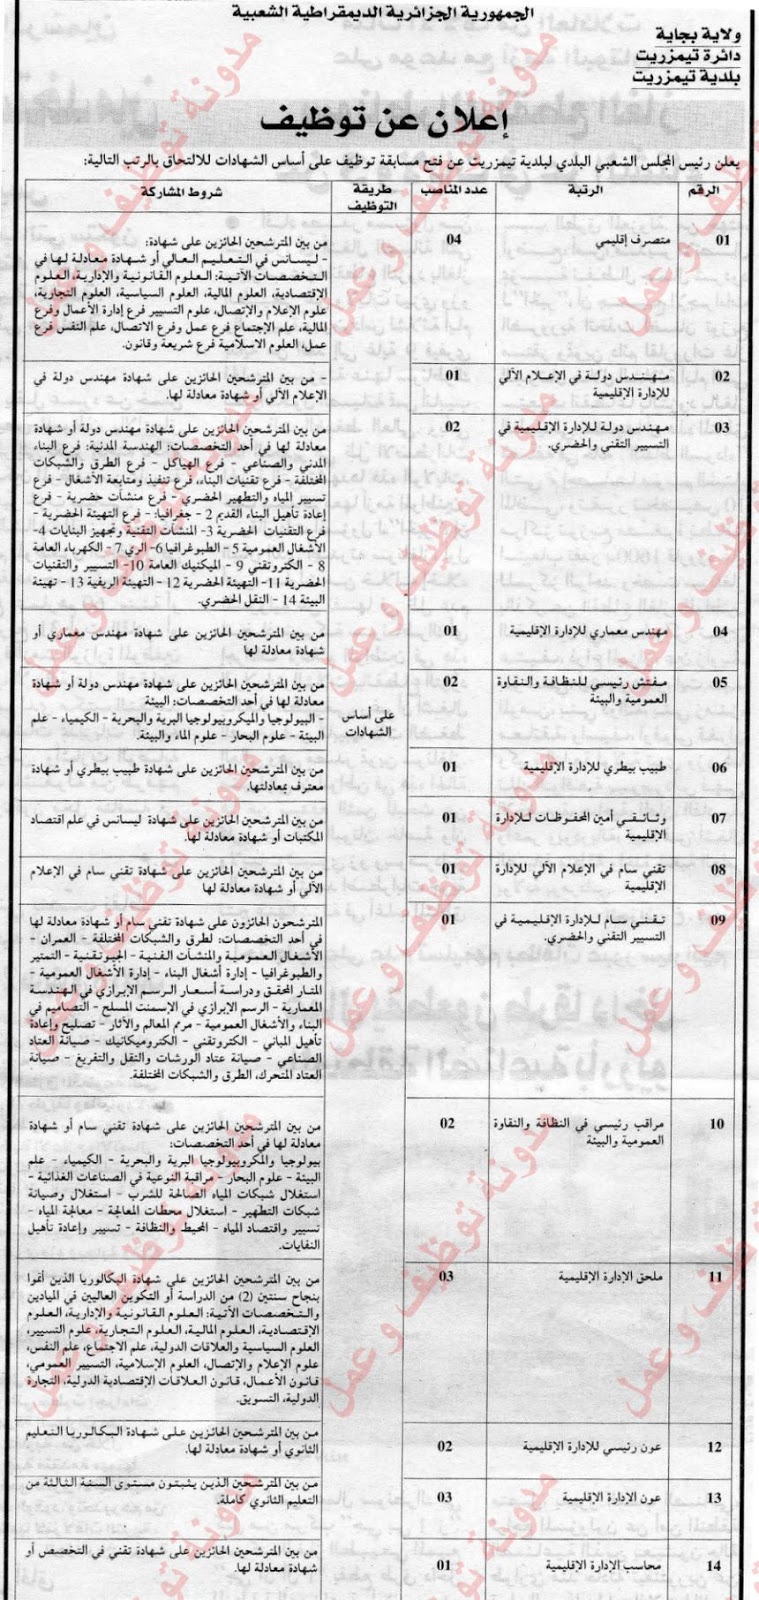 الجمهورية الجزائرية الديمقراطية الشعبية
ولاية بجاية
دائرة تيمزريت
بلدية تيمزريت
إعلان عن توظيف
يعلن رئيس المجلس الشعبي البلدي لبلدية تيمزريت عن فتح مسابقة توظيف على أساس الشهادات للالتحاق بالرتب التالية:
الرقم الرتبة عدد المناصب طريقة التوظيف شروط المشاركة
على أساس
الشهادات
01 متصرف إقليمي 04
من بين المترشحين الحائزين على شهادة:
- ليسانس في التعليم العالي أو شهادة معادلة لها في
التخصصات الآتية: العلوم القانونية والإدارية، العلوم
الإقتصادية، العلوم المالية، العلوم السياسية، العلوم التجارية،
علوم الإعلام والإتصال، علوم التسيير فرع إدارة الأعمال وفرع
المالية، علم الإجتماع فرع عمل وفرع الاتصال، علم النفس فرع
عمل، العلوم الاسلامية فرع شريعة وقانون.
02 مهندس دولة في الإعلام الآلي
للإدارة الإقليمية
01
- من بين المترشحين الحائزين على شهادة مهندس دولة في
الإعلام الآلي أو شهادة معادلة لها.
03 مهندس دولة للإدارة الإقليمية في
التسيير التقني والحضري.
02
من بين المترشحين الحائزين على شهادة مهندس دولة أو شهادة
معادلة لها في أحد التخصصات: الهندسة المدنية: فرع البناء
المدني والصناعي - فرع الهياكل - فرع الطرق والشبكات
المختلفة - فرع تقنيات البناء، فرع تنفيذ ومتابعة الأشغال - فرع
تسيير المياه والتطهير الحضري - فرع منشآت حضرية - فرع
إعادة تأهيل البناء القديم 2 - جغرافيا: فرع التهيئة الحضرية -
فرع التقنيات الحضرية 3- المنشآت التقنية وتجهيز البنايات 4-
الأشغال العمومية 5- الطبوغرافيا 6- الري 7- الكهرباء العامة
8 - الكتروتقني 9 - الميكنيك العامة 10- التسيير والتقنيات
الحضرية 11- التهيئة الحضرية 12 - التهيئة الريفية 13 - تهيئة
البيئة 14 - النقل الحضري.
04 مهندس معماري للإدارة الإقليمية 01
من بين المترشحين الحائزين على شهادة مهندس معماري أو
شهادة معادلة لها
05 مفتش رئيسي للنظافة والنقاوة
العمومية والبيئة
02
من بين المترشحين الحائزين على شهادة مهندس دولة أو شهادة
معادلة لها في أحد التخصصات: البيئة
- البيولوجيا والميكروبيولوجيا البرية والبحرية - الكيمياء - علم
البيئة - علوم البحار - علوم الماء والبيئة.
06 طبيب بيطري للإدارة الإقليمية 01
من بين المترشحين الحائزين على شهادة طبيب بيطري أو شهادة
معترف بمعادلتها.
07 وثائقي أمين المحفوظات للإدارة
الإقليمية
01
من بين المترشحين الحائزين على شهادة ليسانس في علم اقتصاد
المكتبات أو شهادة معادلة لها.
08 تقني سام في الإعلام الآلي للإدارة
الإقليمية
01
من بين المترشحين الحائزين على شهادة تقني سام في الإعلام
الآلي أو شهادة معادلة لها
09 تقني سام للإدارة الإقليمية في
التسيير التقني والحضري.
01
المترشحون الحائزون على شهادة تقني سام أو شهادة معادلة لها
في أحد التخصصات: لطرق والشبكات المختلفة - العمران -
الأشغال العمومية والمنشآت الفنية - الجيوتقنية - التمتير
والطبوغرافيا - إدارة أشغال البناء - إدارة الأشغال العمومية -
المتار المحقق ودراسة أسعار الرسم الإبرازي في الهندسة
المعمارية - الرسم الإبرازي في الإسمنت المسلح - التصاميم في
البناء والأشغال العمومية - مرمم المعالم والآثار - تصليح وإعادة
تأهيل المباني - الكتروتقني - الكتروميكانيك - صيانة العتاد
الصناعي - صيانة عتاد الورشات والنقل والتفريغ - صيانة
العتاد المتحرك، الطرق والشبكات المختلفة.
10 مراقب رئيسي في النظافة والنقاوة
العمومية والبيئة
02
من بين المترشحين الحائزين على شهادة تقني سام أو شهادة
معادلة لها في أحد التخصصات:
بيولوجيا والمكروبيولوجيا البرية والبحرية - الكيمياء - علم
البيئة - علوم البحار - مراقبة النوعية في الصناعات الغذائية -
استغلال شبكات المياه الصالحة للشرب - استغلال وصيانة
شبكات التطهير - استغلال محطات المعالجة - معالجة المياه -
تسيير واقتصاد المياه - المحيط والنظافة - تسيير وإعادة تأهيل
النفايات.
11 ملحق الإدارة الإقليمية 03
من بين المترشحين الحائزين على شهادة البكالوريا الذين أتموا
بنجاح سنتين (2) من الدراسة أو التكوين العاليين في الميادين
والتخصصات الآتية: العلوم القانونية والإدارية، العلوم
الإقتصادية، العلوم المالية، العلوم التجارية، علوم التسيير،
العلوم السياسية والعلاقات الدولية، علم الاجتماع، علم النفس،
علوم الإعلام والإتصال، العلوم الإسلامية، التسيير العمومي،
قانون الأعمال، قانون العلاقات الإقتصادية الدولية، التجارة
الدولية، التسويق.
12 عون رئيسي للإدارة الإقليمية 02
من بين المترشحين الحائزين على شهادة البكالوريا التعليم
الثانوي أو شهادة معادلة لها.
13 عون الإدارة الإقليمية 03
من بين المترشحين الذين يثبتون مستوى السنة الثالثة من
التعليم الثانوي كاملة.
14 محاسب الإدارة الإقليمية 01
من بين المترشحين الحائزين على شهادة تقني في التخصص أو
شهادة معادلة لها.
مدونة توظيف و عمل